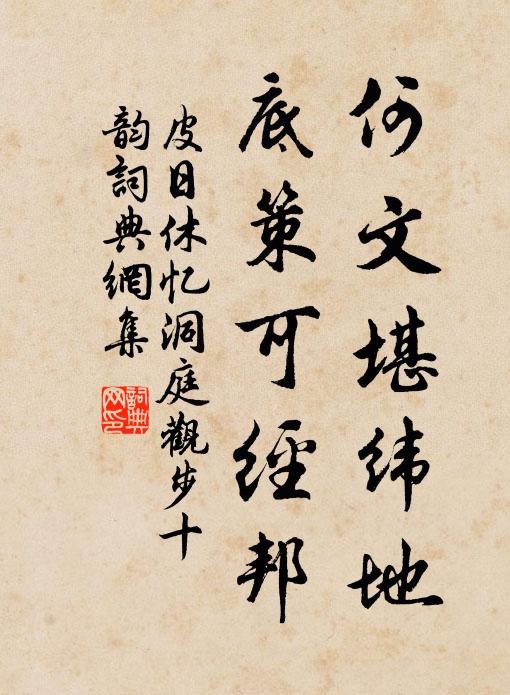 何文堪纬地
底策可經邦
皮日休忆洞庭觀步十
韵詞典網集
詞典网印